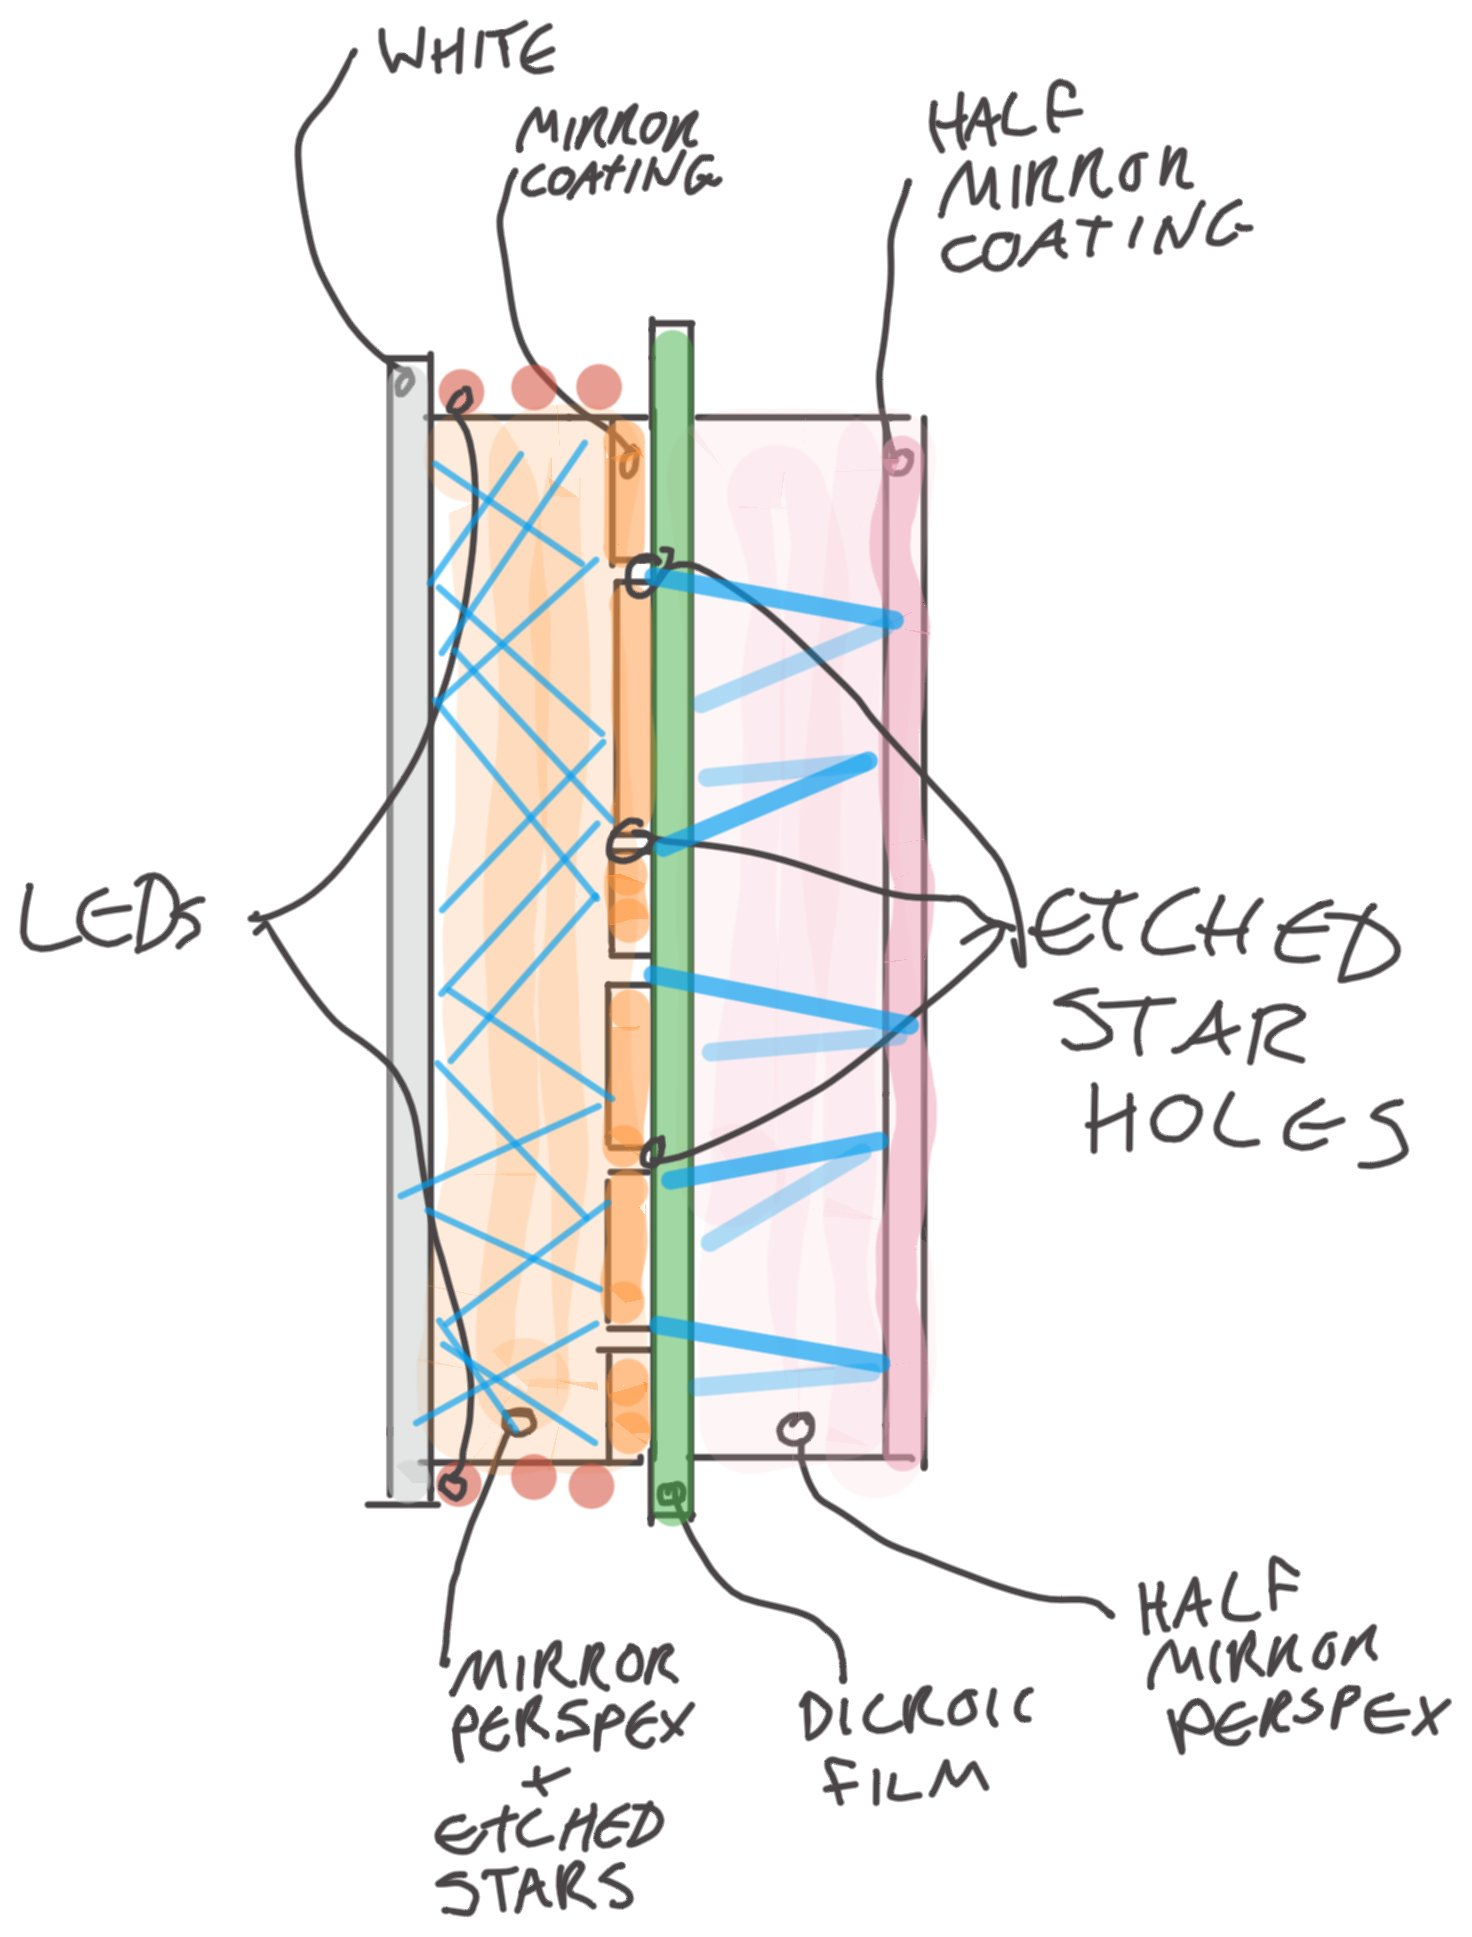 WHITE
MIRROR
COATING
HALF
MIRROR
COATING
LEDs
ETCHED
STAR
HOLES
MIRROR
PERSPEX
+
ETCHED
STARS
DICROIC
FILM
HALF
MIRROR
PERSPEX